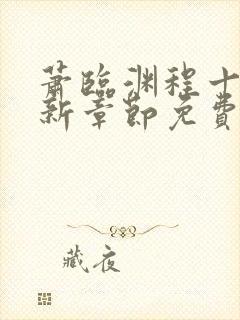 萧临渊程十
新章节免费
藏夜